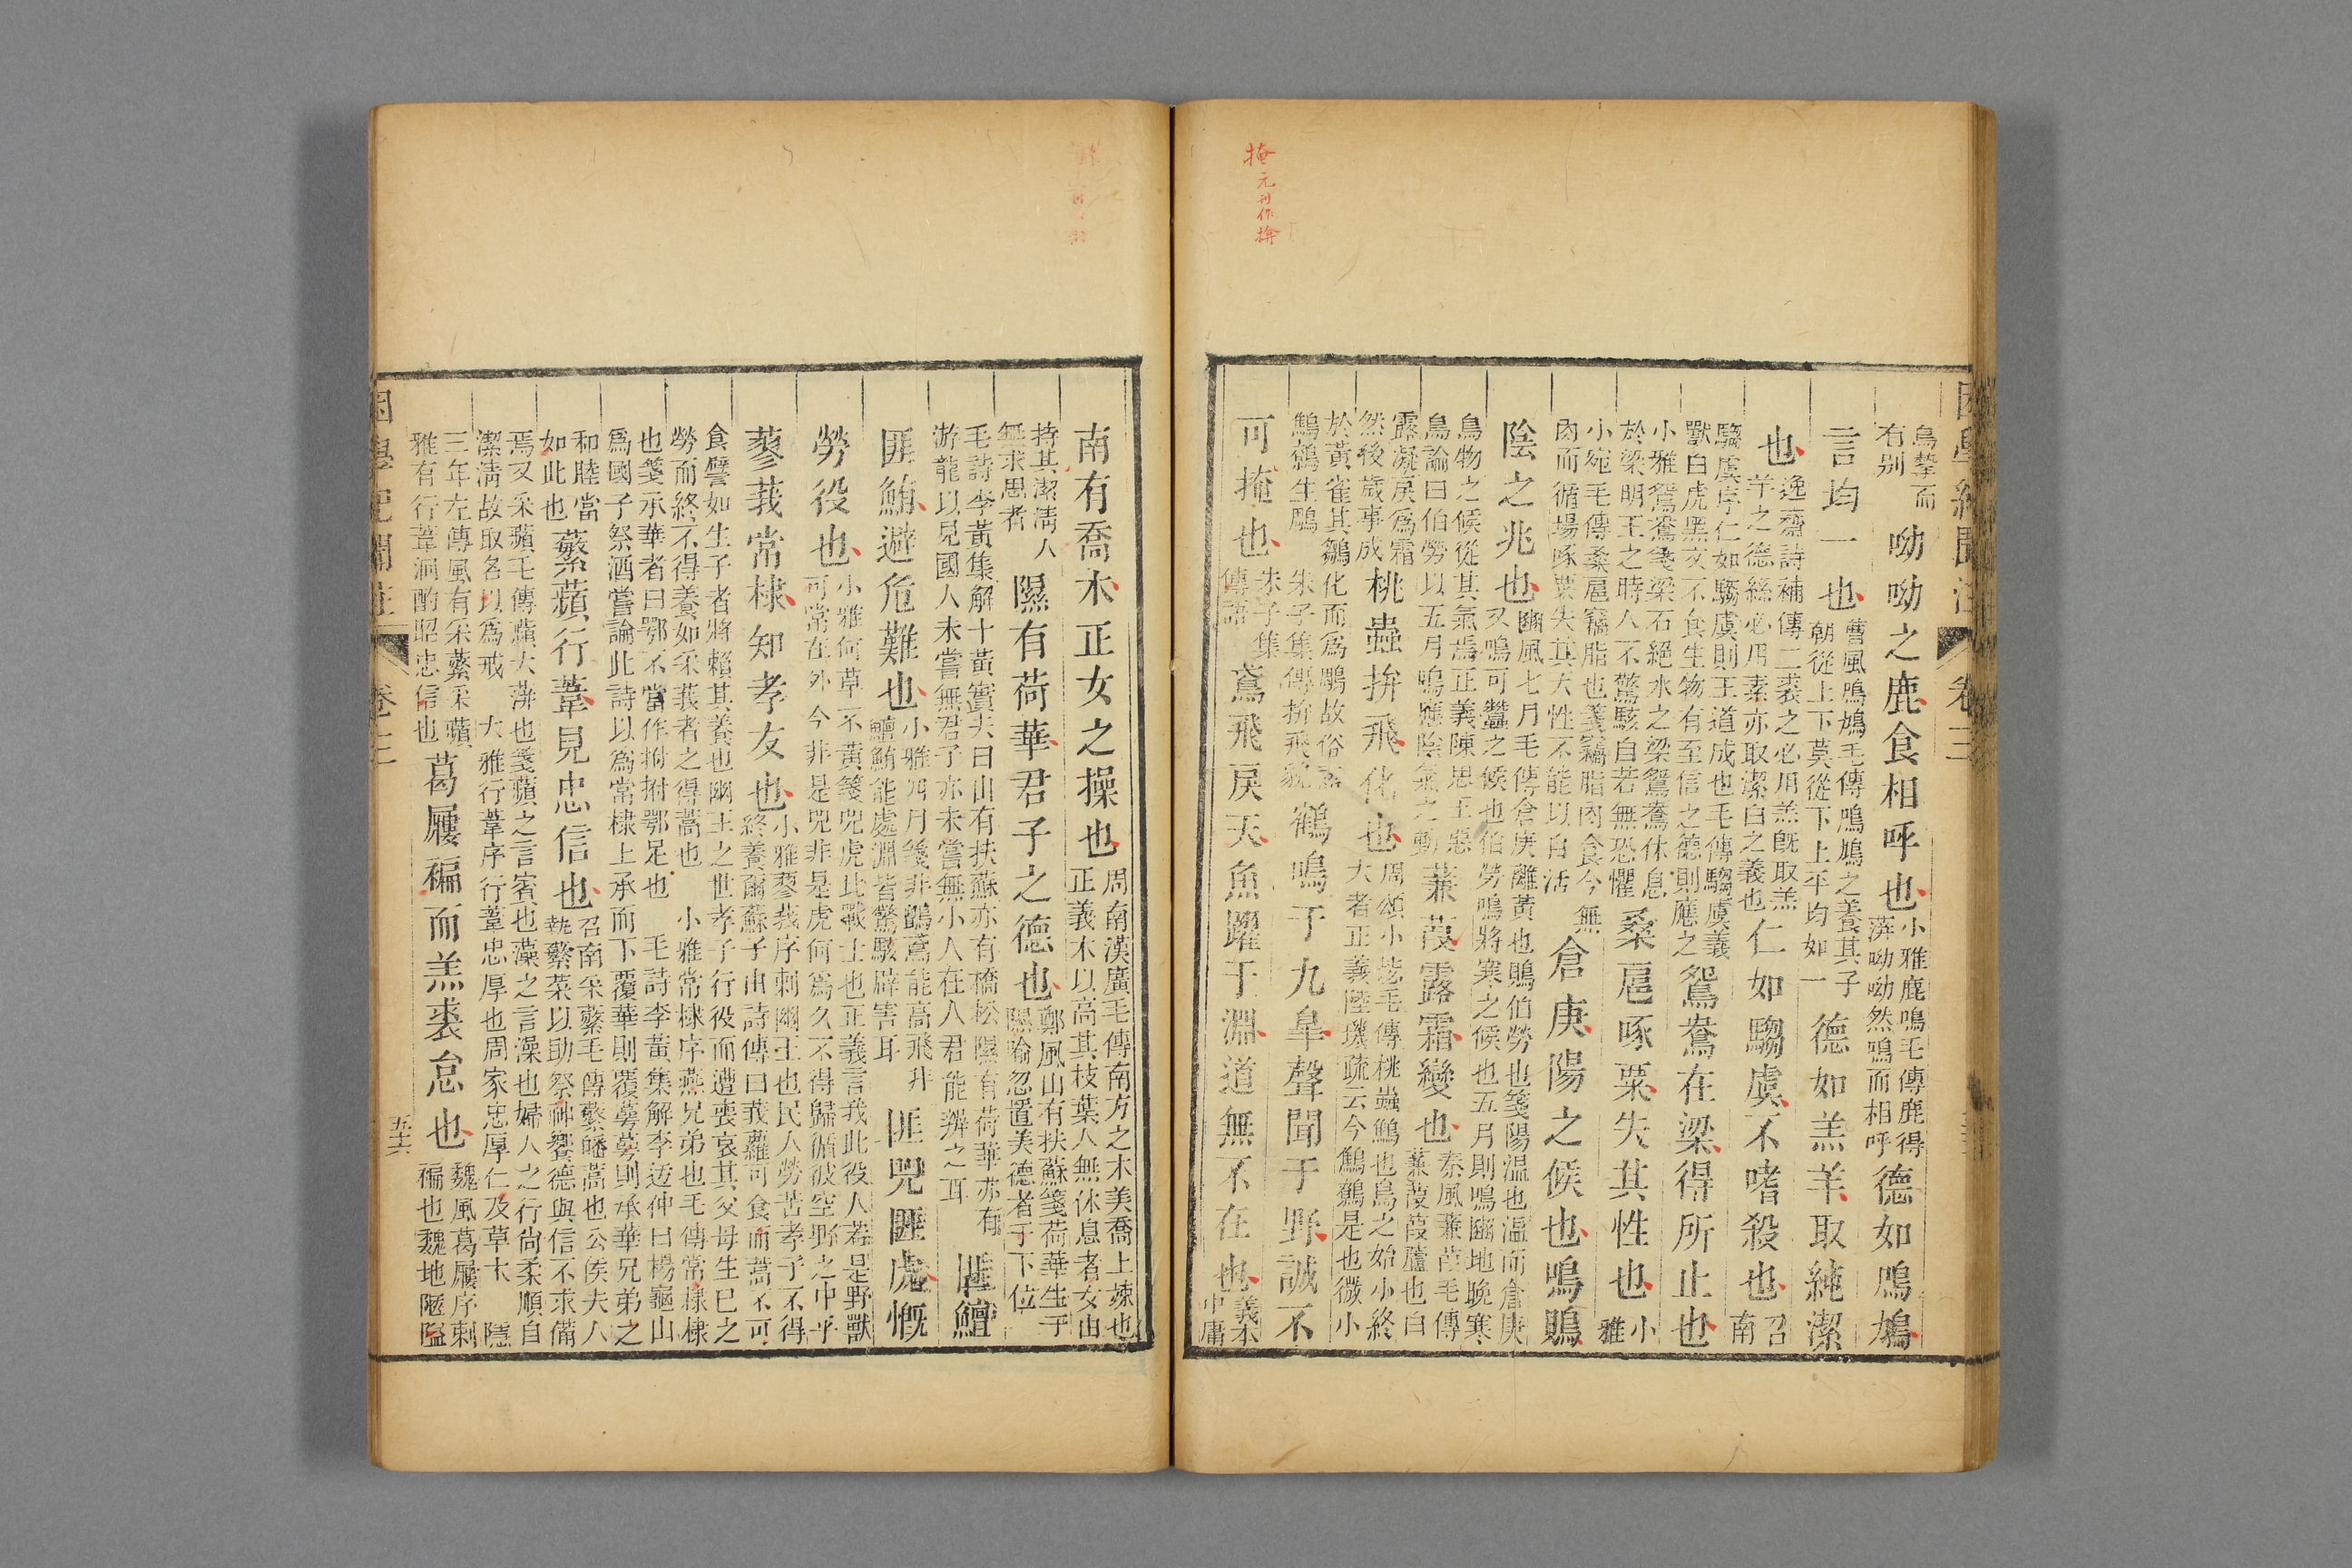 困學紀聞注 卷三
鳥摯而有別呦呦之鹿食相呼也小雅鹿鳴毛傳鹿得蓱呦呦然鳴而相呼德如鳲鳩
言均一也曹風鳲鳩毛傳鳲鳩之養其子朝從上下莫從下上平均如一德如羔羊取純潔
也逸齋詩補傳二裘之必用羔既取羔羊之德絲必用素亦取潔白之義也仁如騶虞不嗜殺也召南
騶虞序仁如騶虞則王道成也毛傳騶虞義獸白虎黑文不食生物有至信之德則應之鴛鴦在梁得所止也
小雅鴛鴦箋梁石絕水之梁鴛鴦休息於梁明王之時人不驚駭自若無恐懼桑扈啄粟失其性也小雅
小宛毛傳桑扈竊脂也箋竊脂肉食今無肉而循場啄粟失其天性不能以自活倉庚陽之候也鳴鵙
陰之兆也豳風七月毛傳倉庚離黃也鵙伯勞也箋陽温也温而倉庚又鳴可蠶之候也伯勞鳴將寒之候也五月則鳴豳地晚寒
鳥物之候從其氣焉正義陳思王惡鳥論曰伯勞以五月鳴應陰氣之動蒹葭露霜變也秦風蒹葭毛傳蒹葭葭蘆也白
露凝戾爲霜然後歲事成桃蟲拚飛化也周頌小毖毛傳桃蟲鷦也鳥之始小終大者正義陸璣疏云今鷦鷯是也微小
於黃雀其雛化而爲鵰故俗語鷦鷯生鵰朱子集傳拚飛貌鶴鳴于九皋聲聞于野誠不
可掩也朱子集傳語鳶飛戾天魚躍于淵道無不在也義本中庸
掩元刊作揜
南有喬木正女之操也周南漢廣毛傳南方之木美喬上竦也正義木以高其枝葉人無休息者女由
持其潔清人無求思者隰有荷華君子之德也鄭風山有扶蘇箋荷華生于隰喻忽置美德者于下位
毛詩李黃集解十黃實夫曰山有扶蘇亦有橋松隰有荷華亦有游龍以見國人未嘗無君子亦未嘗無小人在人君能辨之耳匪鱣
匪鮪避危難也小雅四月箋非鶉鳶能高飛非鱣鮪能處淵皆驚駭辟害耳匪兕匪虎慨
勞役也小雅何草不黃箋兕虎比戰士也正義言我此役人若是野獸可常在外今非是兕非是虎何爲久不得歸循彼空野之中乎
蓼莪常棣知孝友也小雅蓼莪序刺幽王也民人勞苦孝子不得終養爾蘇子由詩傳曰莪蘿可食而蒿不可
食譬如生子者將賴其養也幽王之世孝子行役而遭喪哀其父母生己之勞而終不得養如采莪者之得蒿也 小雅常棣序燕兄弟也毛傳常棣棣
也箋承華者曰鄂不當作拊拊鄂足也 毛詩李黃集解李迃仲曰楊龜山爲國子祭酒嘗論此詩以爲常棣上承而下覆華則覆萼萼則承華兄弟之
和睦當如此也蘩蘋行葦見忠信也召南采蘩毛傳蘩皤蒿也公侯夫人執蘩菜以助祭神饗德與信不求備
焉又采蘋毛傳蘋大蓱也箋蘋之言賓也藻之言澡也婦人之行尚柔順自潔清故取名以爲戒 大雅行葦序行葦忠厚也周家忠厚仁及草木 隱
三年左傳風有采蘩采蘋雅有行葦泂酌昭忠信也葛屨褊而羔裘怠也魏風葛屨序刺褊也魏地陿隘
困學紀聞注 卷三 五六